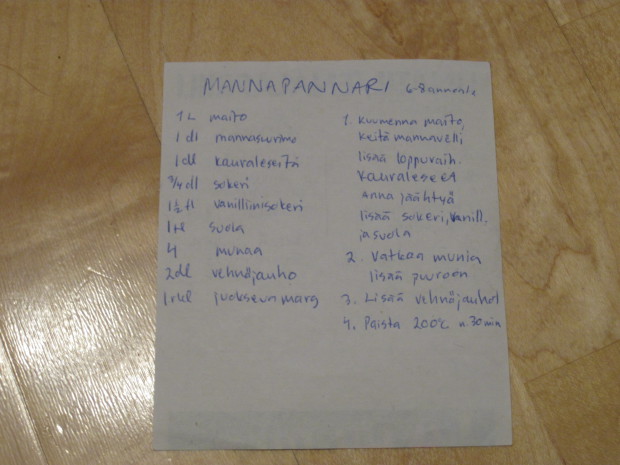 MANNAPANNARI 6-8 annosta
1 L maito
1 dl mannasuurimo
1 dl kauraleseitä
3/4 dl sokeri
1 1/2 tl vanilliinisokeri
1 tl suola
4 munaa
2 dl vehnäjauho
1 rkl juokseva marg
1. Kuumenna maito,
keitä mannavelli,
lisää loppuvaih.
kauraleseet
Anna jäähtyä
lisää sokeri, vanill.
ja suola
2. Vatkaa munia
lisää puuroon
3. Lisää vehnäjauhot
4. Paista 200°C n. 30 min